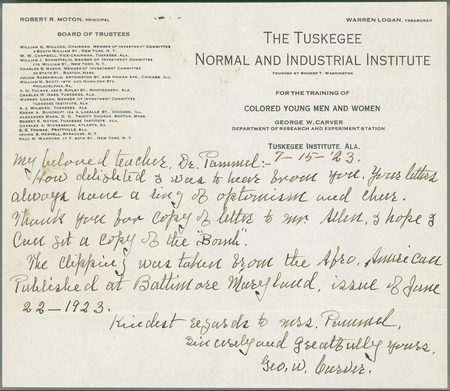 ROBERT R. MOTON, PRINCIPAL
WARREN LOGAN, TREASURER
BOARD OF TRUSTEES
WILLIAM G. WILLCOX, CHAIRMAN, MEMBER OF INVESTMENT COMMITTEE
3 SOUTH WILLIAM ST., NEW YORK, N. Y.
W. W. CAMPBELL, VICE-CHAIRMAN, TUSKEGEE, ALA.
WILLIAM J. SCHIEFFELIN, MEMBER OF INVESTMENT COMMITTEE
170 WILLIAM ST., NEW YORK, N. Y.
CHARLES E. MASON, MEMBER OF INVESTMENT COMMITTEE
STATE ST., BOSTON, MASS.
JULIUS ROSENWALD, ARTHINGTON ST., AND HOMAN AVE., CHICAGO, ILL.
WILLIAM M. SCOTT, AND HAMILTON STS.,
PHILADELPHIA, PA.
V. H. TULANE, RIPLEY ST., MONTGOMERY, ALA.
CHARLES W. HARE, TUSKEGEE, ALA.
WARREN LOGAN, MEMBER OF INVESTMENT COMMITTEE
TUSKEGEE INSTITUTE, ALA.
A. J. WILBORN, TUSKEGEE, ALA.
EDGAR A. BANCROFT, LASALLE ST., CHICAGO, ILL.
ALEXANDER MANN, D. D., TRINITY CHURCH, BOSTON, MASS.
ROBERT R. MOTON, TUSKEGEE INSTITUTE, ALA.
CHARLES A. WICKERSHAM, ATLANTA, GA.
C. E. THOMAS, PRATTVILLE, ALA.
IRVING S. MERRELL, SYRACUSE, N. Y.
PAUL M. WARBURG, 17 E. 80TH ST., NEW YORK, N. Y.
THE TUSKEGEE
NORMAL AND INDUSTRIAL INSTITUTE
FOUNDED BY BOOKER T. WASHINGTON
FOR THE TRAINING OF
COLORED YOUNG MEN AND WOMEN
GEORGE W. CARVER
DEPARTMENT OF RESEARCH AND EXPERIMENT STATION
TUSKEGEE INSTITUTE, ALA.
My beloved teacher, Dr. Pammel:- 7-15-'23.
How delighted I was to hear from you. Your letters
always have a ring of optimism and cheer.
Thank you for copy of letter to Mr Allen, I hope I
can get a copy of the "Bomb".
The clipping was taken from the Afro, American
Published at Baltimore Maryland, issue of June
22-1923.
Kindest regards to Mrs. Pammel,
Sincerely and Greatfully yours,
Geo. W. Carver.